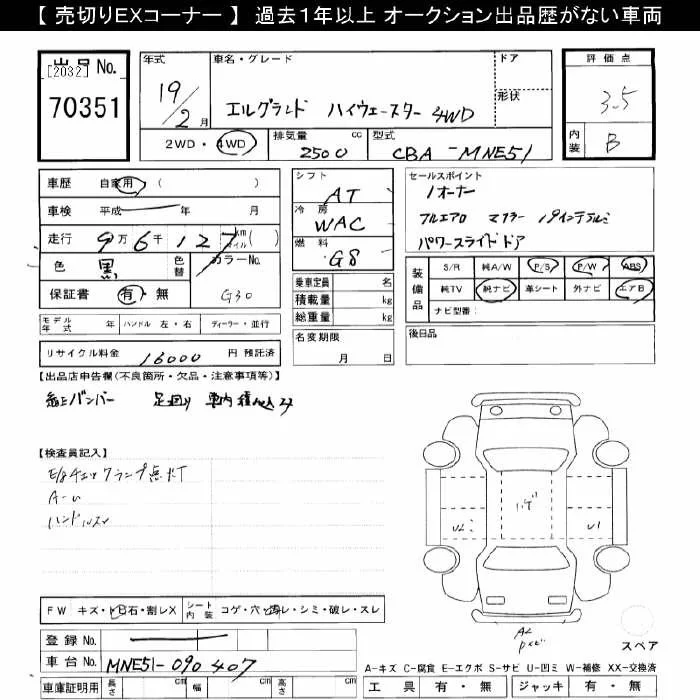 【 売切りEXコーナー 】 過去１年以上 オークション出品歴がない車両
出品 No. [2032]
70351
年式 19/2 月
車名・グレード
エルグランド ハイウェースター 4WD
ドア
形状
評価点
3.5
内装 B
2WD・4WD
排気量 2500 cc
型式 CBA-MNE51
車歴 自家用 ( )
車検 平成 年 月
走行 9万6千127 km マイル ( )
色 黒 色替 カラーNo.
保証書 有・無 G30
シフト AT
冷房 WAC
燃料 GS
乗車定員 名
積載量 kg
総重量 kg
セールスポイント
1オーナー
フルエアロ マフラー 19インチアルミ
パワースライドドア
装備品
S/R 純A/W P/S P/W ABS
純TV 純ナビ 革シート 外ナビ エアB
ナビ型番:
モデル年式 年 ハンドル 左・右 ディーラー・並行
リサイクル料金 16000 円 預託済
名変期限 月 日
後日品
【出品店申告欄(不良箇所・欠品・注意事項等)】
純正バンパー 足廻り 車内積込み
【検査員記入】
E/gチェックランプ点灯
A-U
ハンドルスレ
コゲ
U2
U1
A2
FW キズ・トビ石・割レX
シート内装 コゲ・穴・擦レ・シミ・破レ・スレ
登録 No.
車台 No. MNE51-090407
車庫証明用 長さ cm 幅 cm 高さ cm
スペア
A-キズ C-腐食 E-エクボ S-サビ U-凹ミ W-補修 XX-交換済
工具 有・無 ジャッキ 有・無